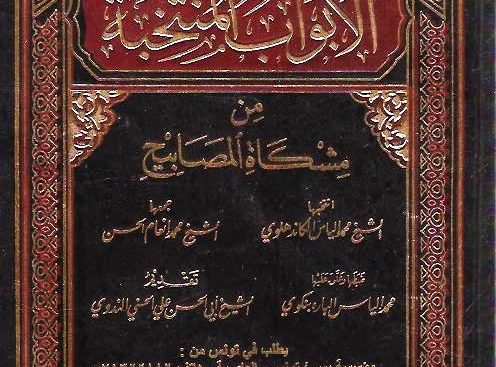 الأبواب المنتخبة
من
مشكاة المصابيح
انتخبها
الشيخ محمد الياس الكاندهلوي
جمعها
الشيخ محمد انعام الحسن
محمد الياس الباره بنكوي
تقديم
الشيخ أبي الحسن علي الحسني الندوي
يطلب في تونس من :